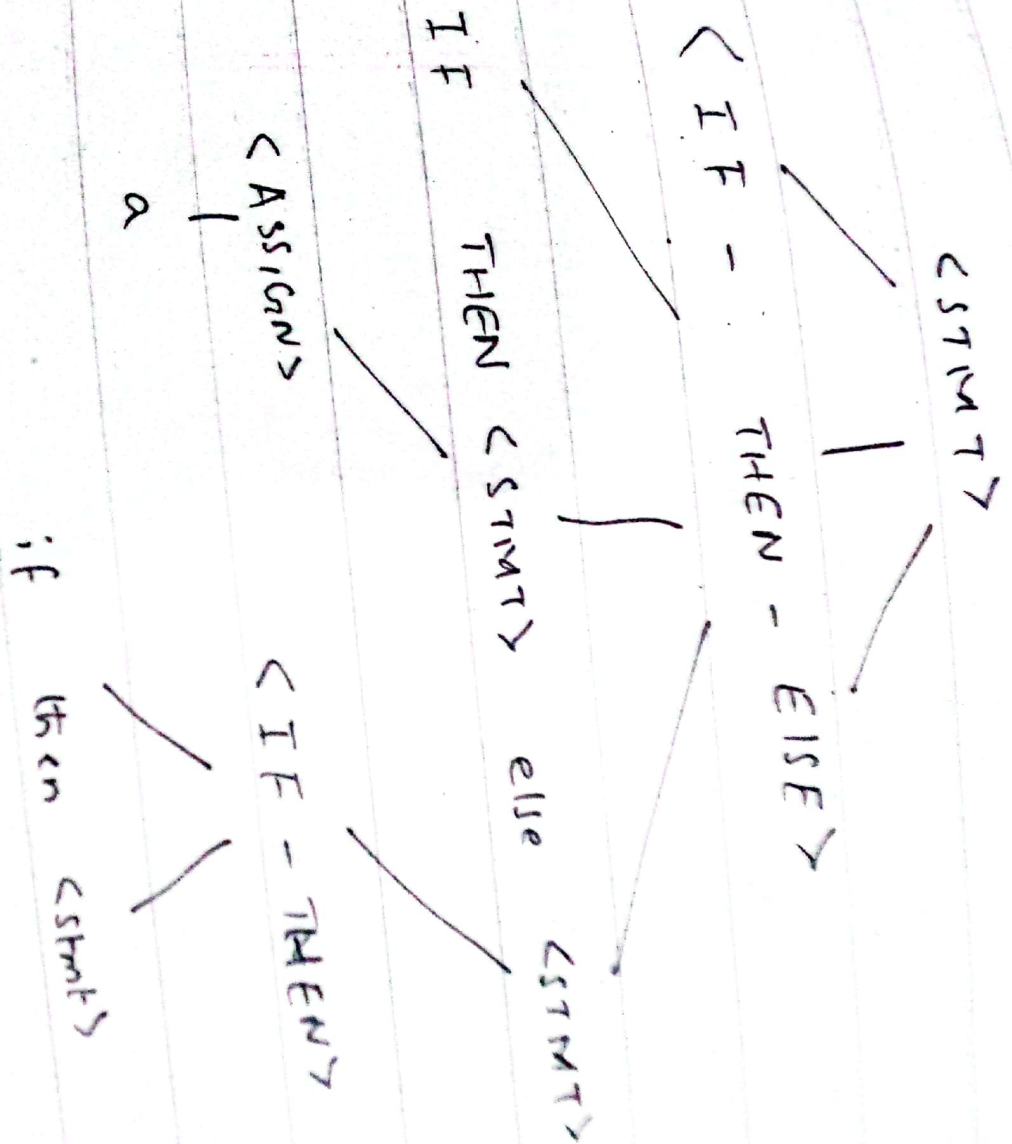 <STMT>
<IF - THEN - ElSE>
IF THEN <STMT> else <STMT>
<ASSIGN> <IF - THEN>
a
if then <stmt>